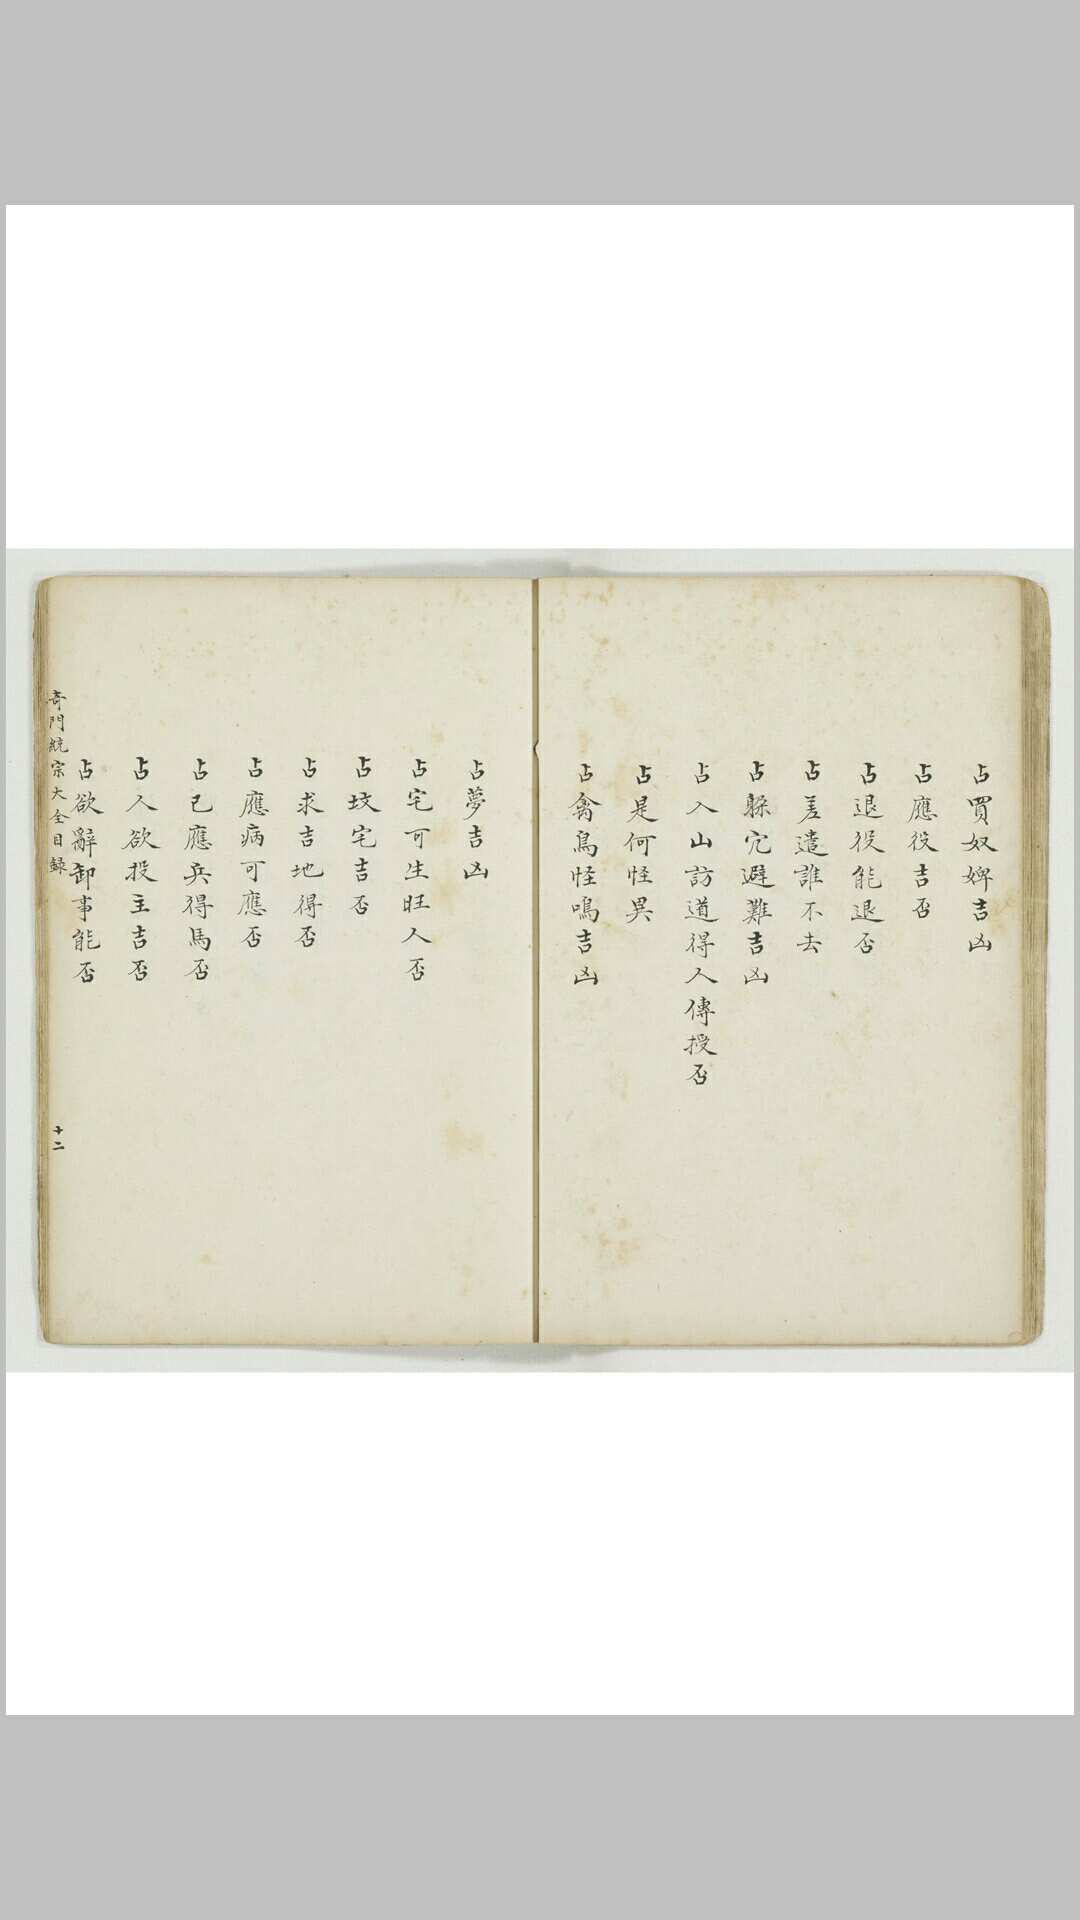 占買奴婢吉凶
占應役吉否
占退役能退否
占差遣誰不去
占躲穴避難吉凶
占入山訪道得人傳授否
占是何怪異
占禽鳥怪鳴吉凶
占夢吉凶
占宅可生旺人否
占坟宅吉否
占求吉地得否
占應病可應否
占已應兵得馬否
占人欲投主吉否
占欲辭卸事能否
奇門統宗大全目録
十二